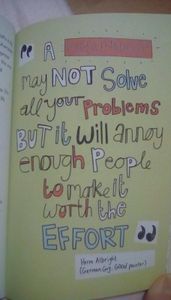 " A
may NOT Solve
all your Problems
BUT it will annoy
enough People
to make it
worth the
EFFORT "
Herm Albright
(German Guy. Good painter)